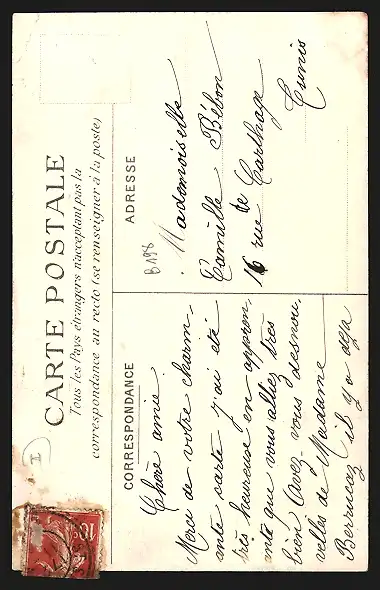 CARTE POSTALE
Tous les Pays étrangers n'acceptant pas la
correspondance au recto (se renseigner à la poste)
CORRESPONDANCE
Chère amie
Merci de votre charm-
ante carte j'ai été
très heureuse en appren,
ante que vous alliez très
bien Avez-vous desnou,
velles de Madame
Berrucaz il y a deja
ADRESSE
Mademoiselle
Camille Bélon
16 rue de Carthage
Tunis
B198
I
10